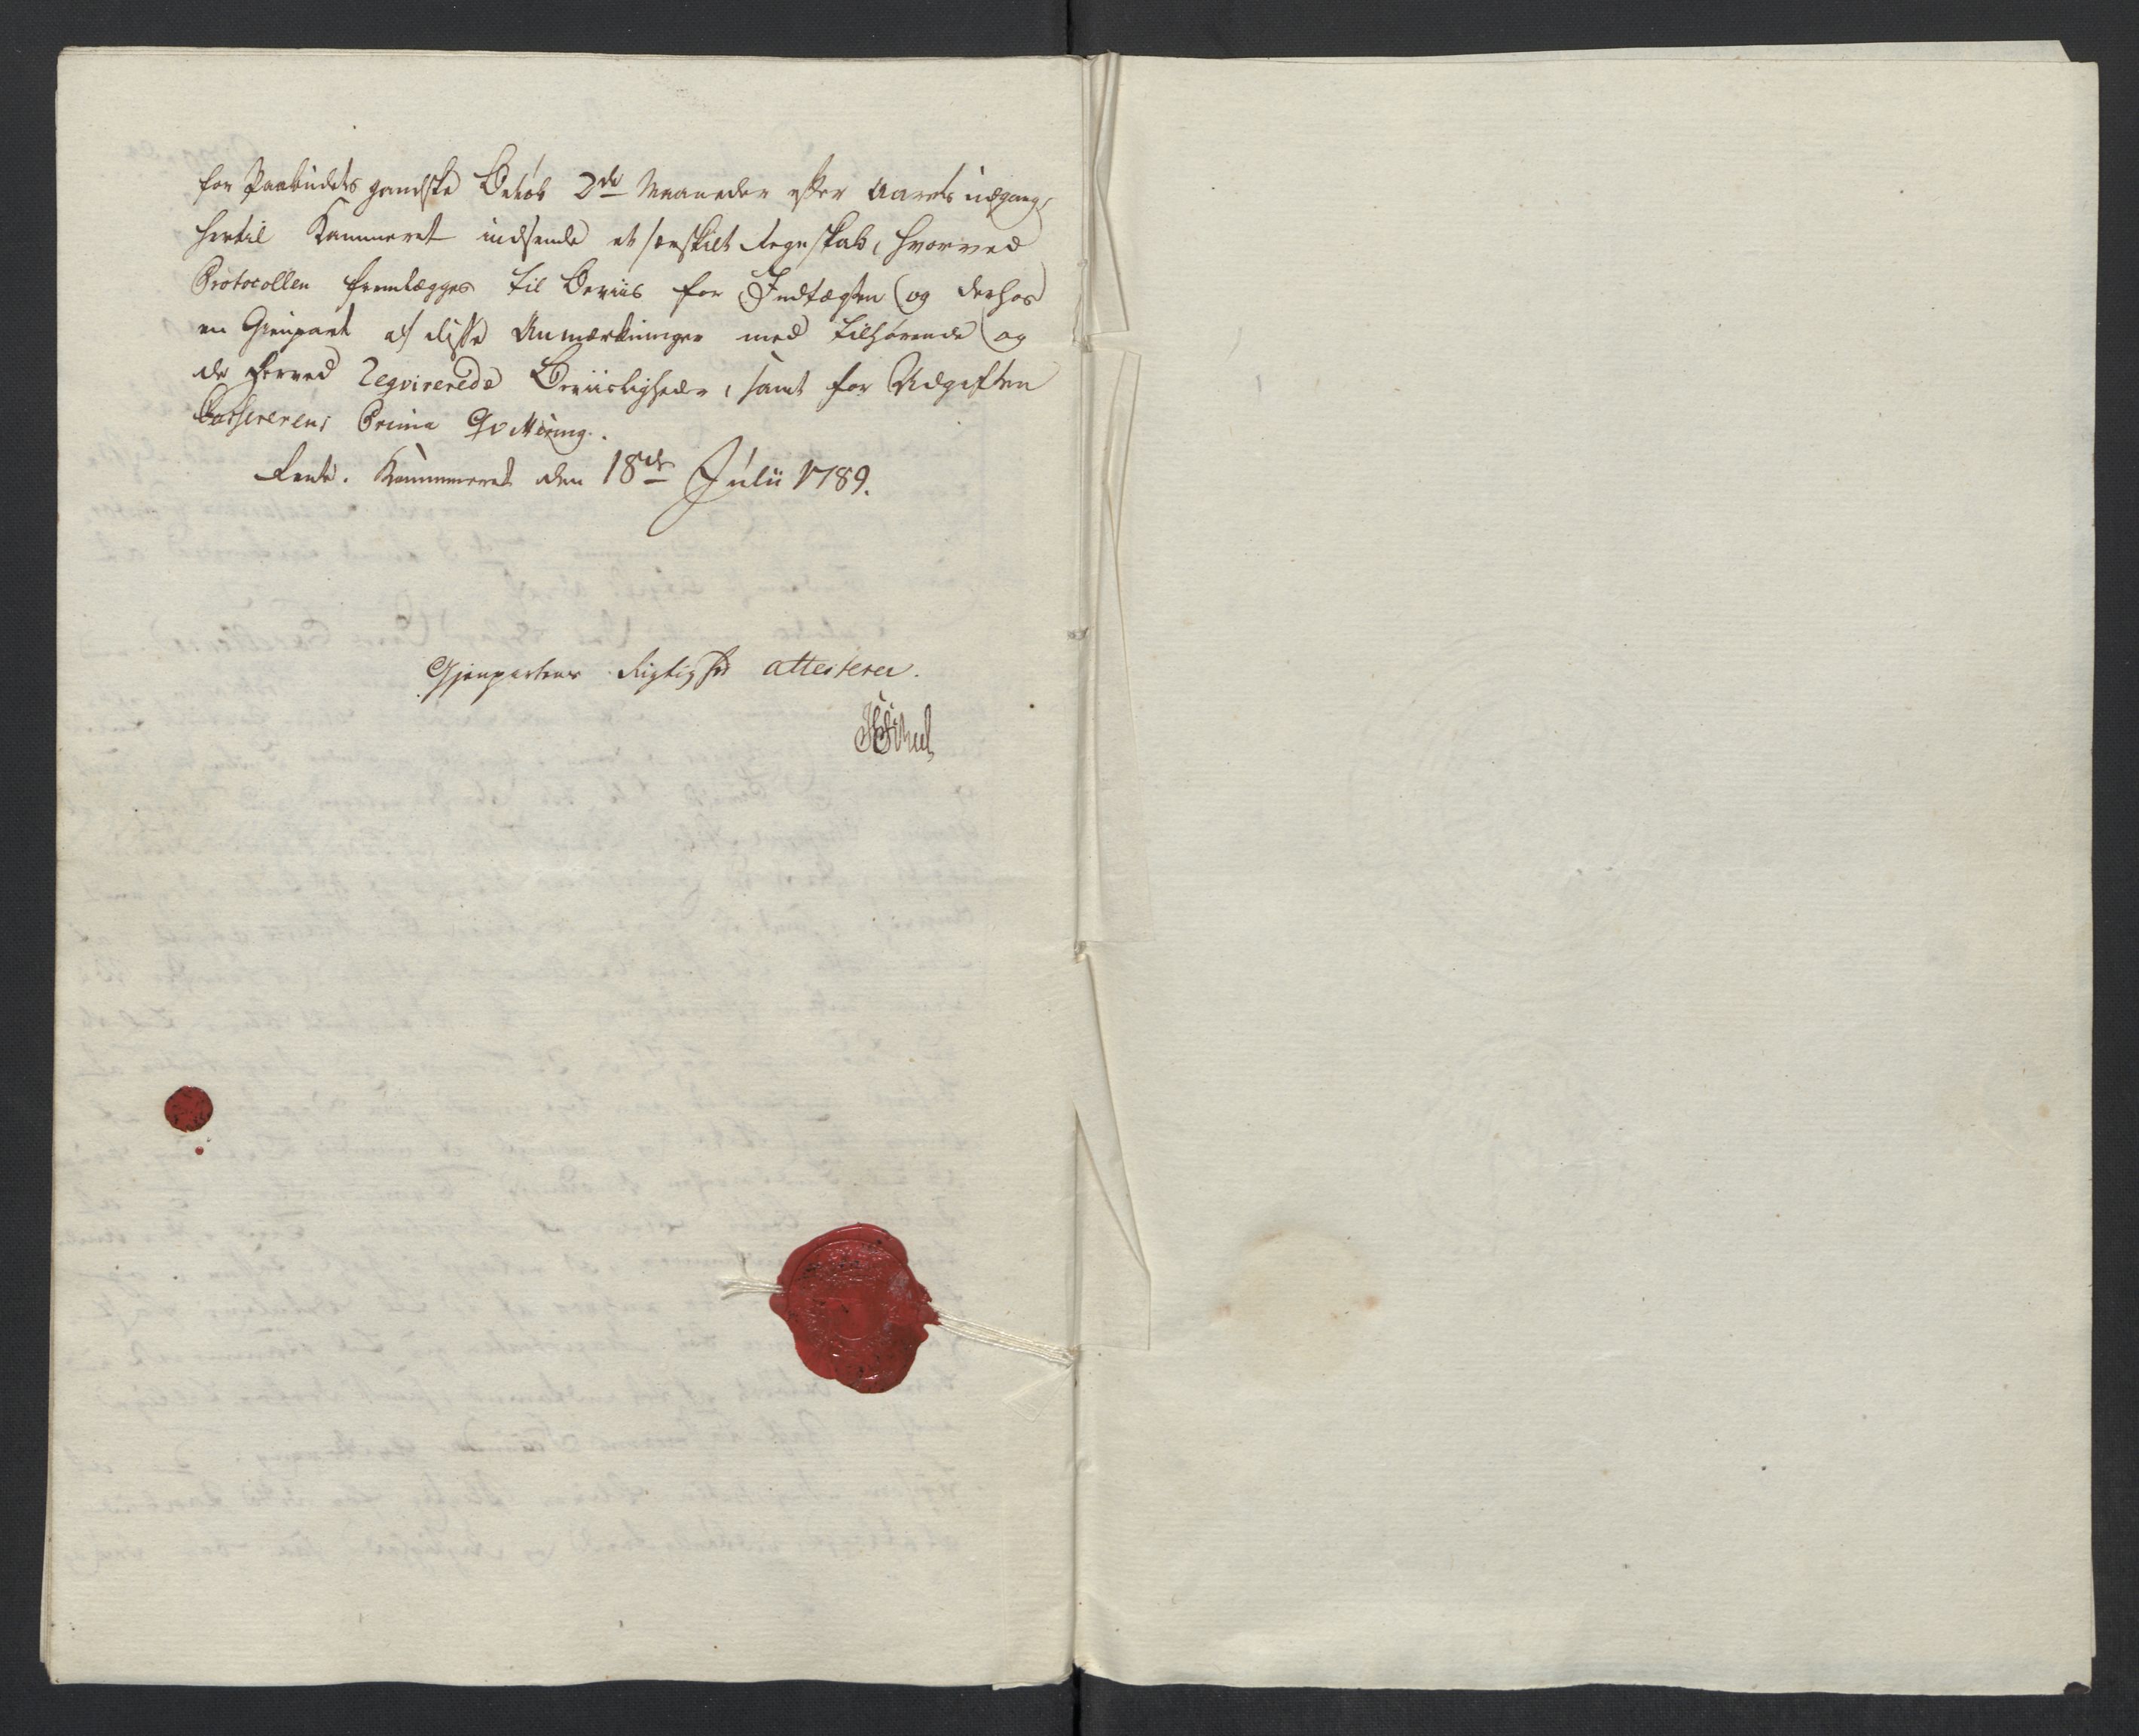 for Paabudets gandske Beløb 2de Maaneder efter Aarets udgang,
hertil Kammeret indsende et særskilt Regnskab, hvorved
Protocollen fremlægges til Beviis for Indtægten (og derhos
en Gienpart af disse Anmærkninger med tilhørende) og
de herved reqvirerede Beviisligheder, samt for Udgiften
Cassererens Prima Qvittering.
Rente. Kammeret den 18de Julii 1789.
Gjenpartens Rigtighed attesterer.